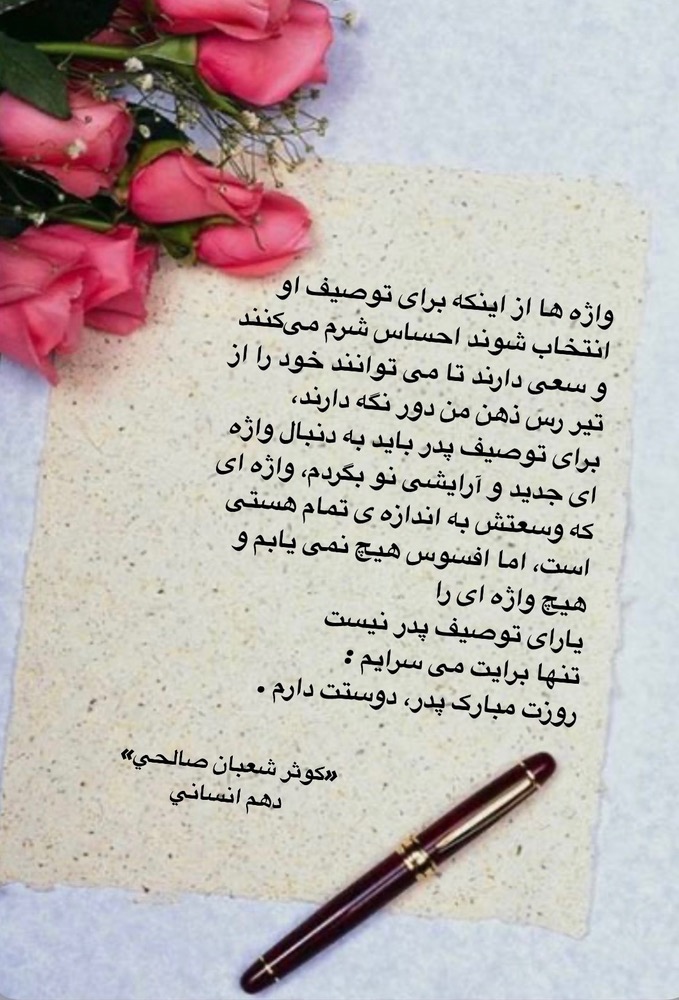 واژه ها از اینکه برای توصیف او
انتخاب شوند احساس شرم می‌کنند
و سعی دارند تا می توانند خود را از
تیر رس ذهن من دور نگه دارند،
برای توصیف پدر باید به دنبال واژه
ای جدید و آرایشی نو بگردم، واژه ای
که وسعتش به اندازه ی تمام هستی
است، اما افسوس هیچ نمی یابم و
هیچ واژه ای را
یارای توصیف پدر نیست
تنها برایت می سرایم :
روزت مبارک پدر، دوستت دارم .
«کوثر شعبان صالحي»
دهم انساني